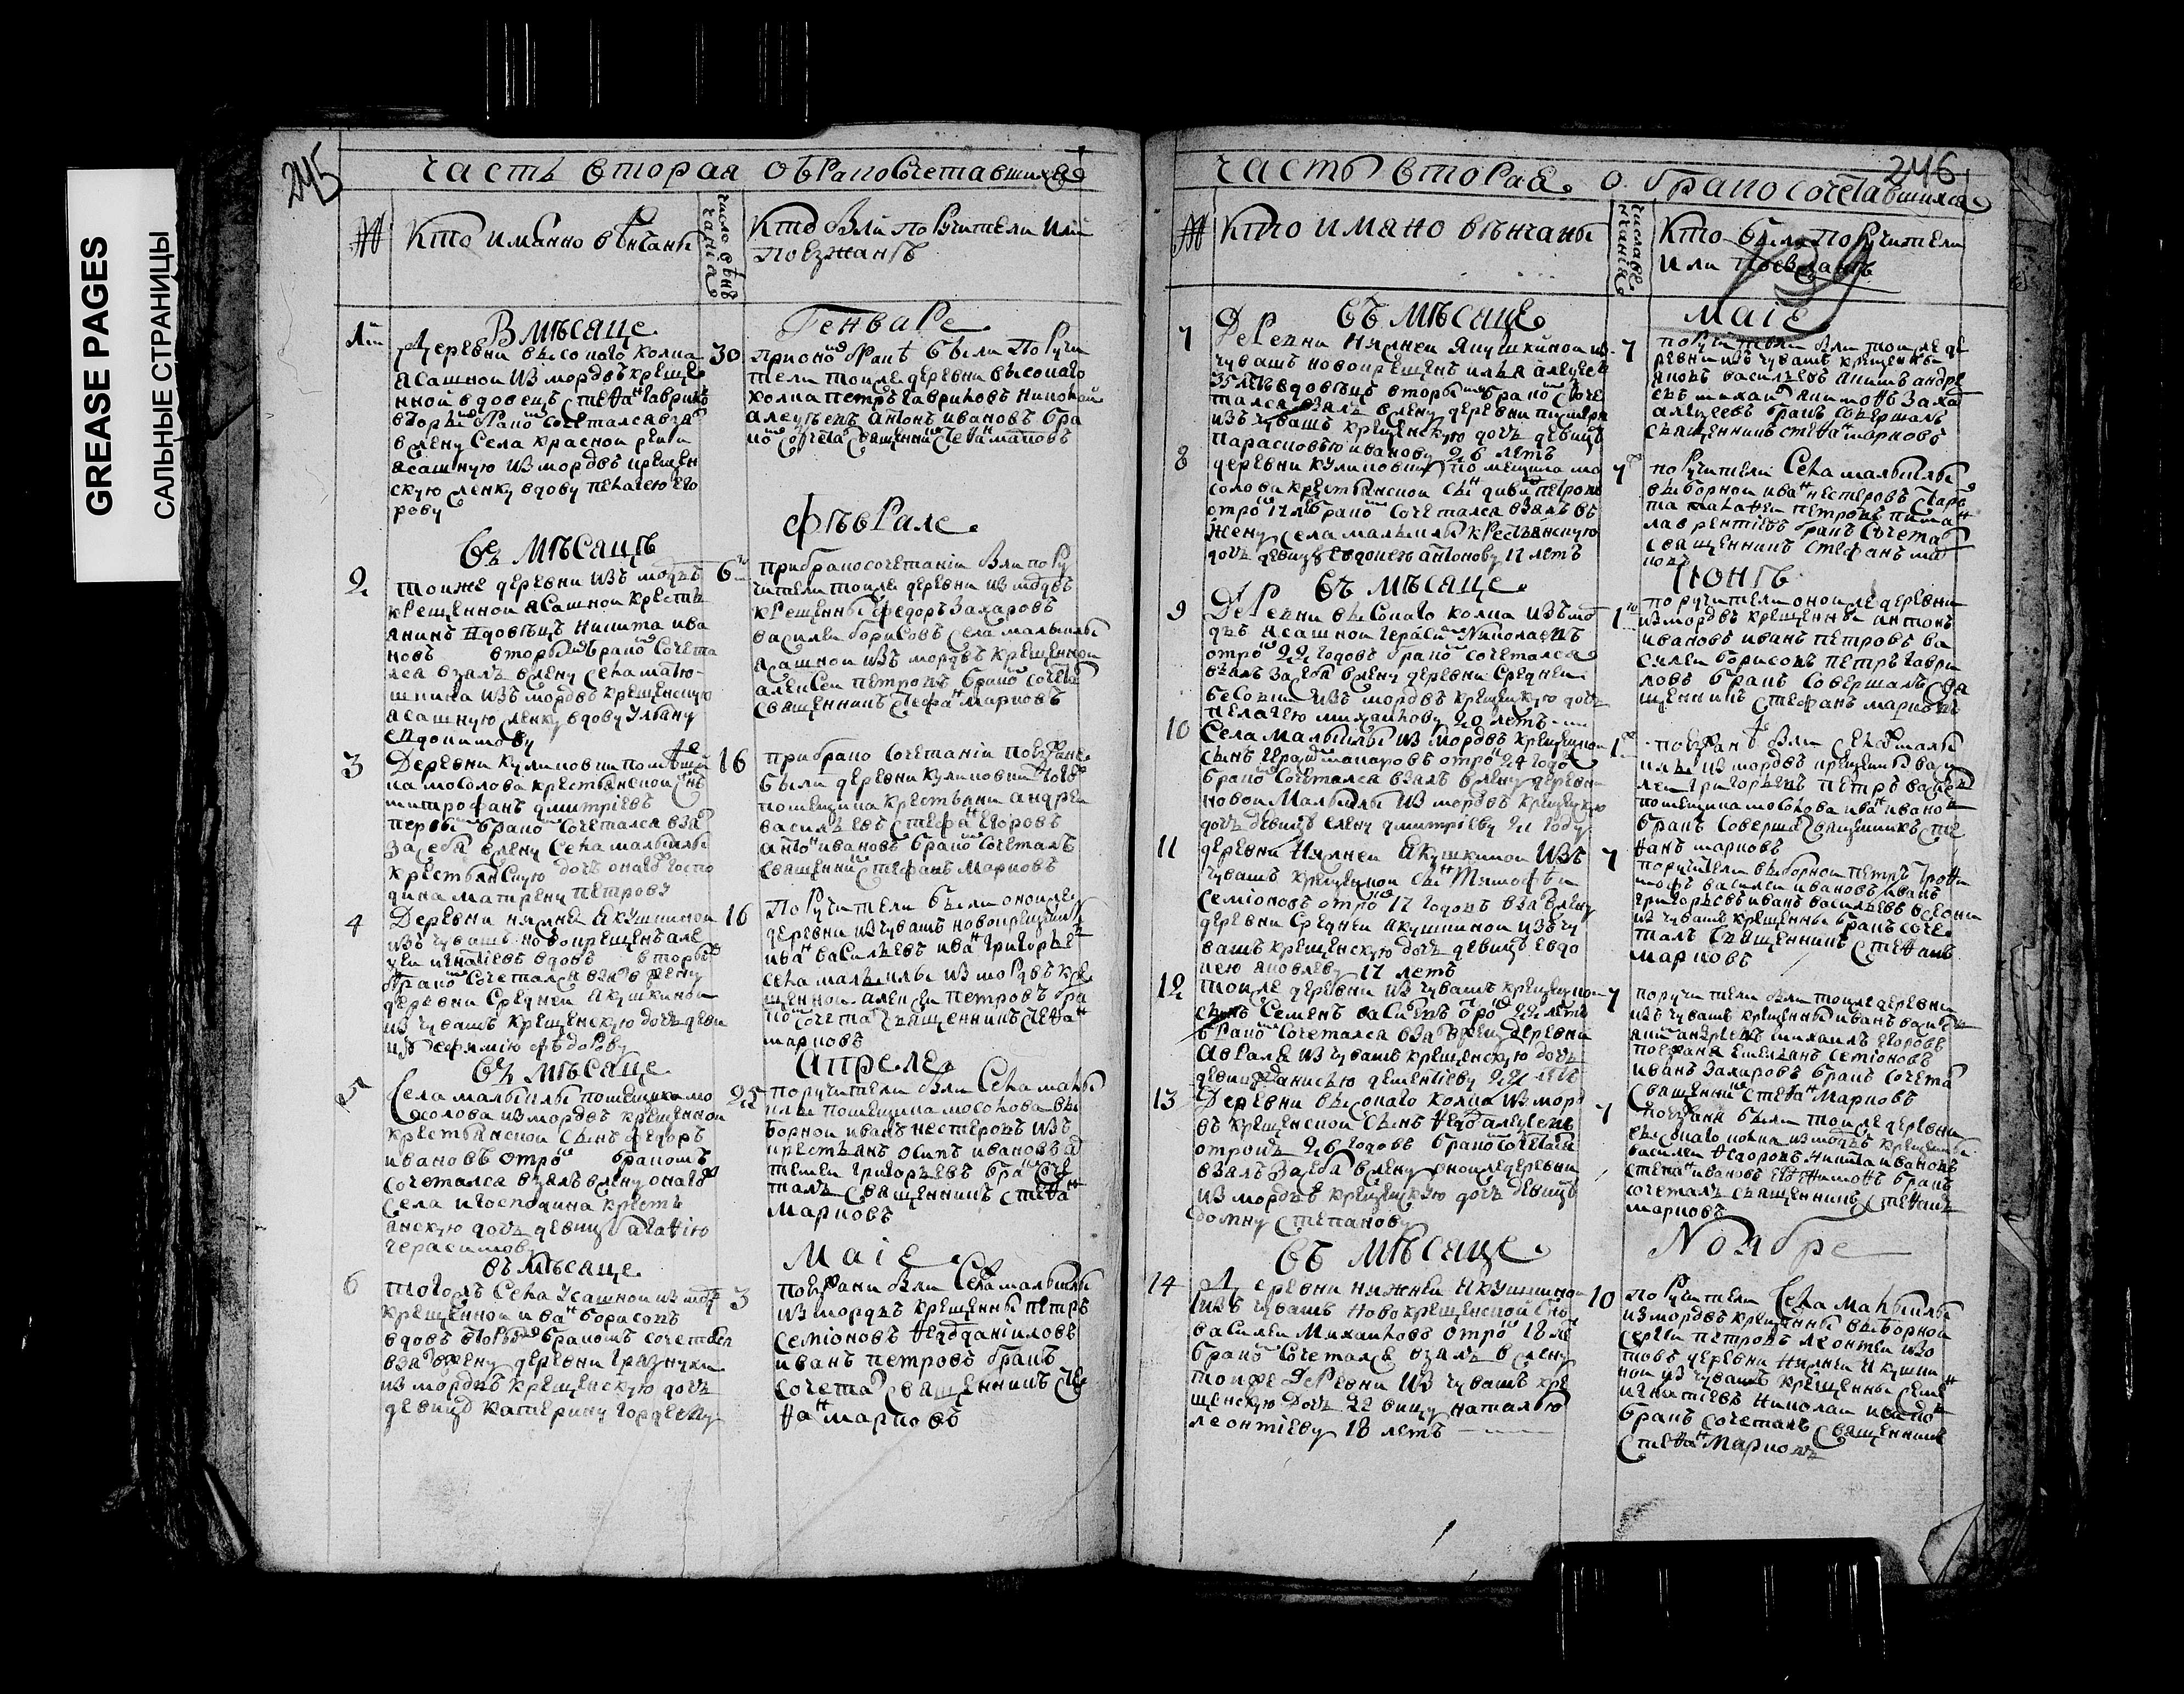 GREASE PAGES
САЛЬНЫЕ СТРАНИЦЫ
245
часть вторая о бракосочетавшихся
№
Кто иманно венчаны
число венчания
Кто были поручители или
поезжанѣ
В мѣсяце
Генваре
Деревни высокаго колка
ясашной из мордвъ креще
нной вдовецъ Стефан Гаврил
вторым браком сочетался взял
в жену села красной реки
ясашную из мордвъ крещен
скую женку вдову пелагею его
рову
30
при оном браке были поручи
тели тойже деревни высокаго
колка петръ гавриловъ николай
алеѯѣевъ антонъ ивановъ бра
ком сочетал священник Стефан марковъ
Въ мѣсяцѣ
Февралѣ
2
тоиже деревни изъ мордвъ
крещенной ясашной кресть
янинъ вдовецъ никита ива
новъ вторым браком сочета
лся взялъ в жену села матю
шкина изъ мордвъ крещенскую
ясашную женку вдову ульяну
евдокимову
6
при бракосочетаніи были пору
чители тоиже деревни из мордвъ
крещенны федоръ захаровъ
василей борисовъ села малыклы
ясашной изъ мордвъ крещенной
алексей петровъ браком сочетал
священникъ Стефан марковъ
3
Деревни куликовки помещи
ка мосолова крестьянской снъ
митрофанъ дмитріевъ
первым браком сочетался взял
за себя в жену села малыклы
крестьянскую дочь онаго госпо
дина матрену петрову
16
при бракосочетаніи поезжане
были деревни куликовки тогож
помещика крестьяни андреи
василъевъ Стефан егоровъ
антон ивановъ браком сочеталъ
священник Стефанъ марковъ
4
Деревни нижней якушкиной
изъ чувашъ новокрещенъ але
ѯеи игнатіевъ вдовъ вторым
браком сочетался взял в жену
деревни средней якушкиной
из чувашъ крещенскую дочь деви
цу ефимию федорову
16
поручители были оной же
деревни изъ чувашъ новокрещены
иван васильевъ иван григорьев
села малыклы из мордвъ кре
щенной алексеи петровъ бра
ком сочетал священникъ Стефан
марковъ
Въ мѣсяце
Апреле
5
Села малыклы помещика мо
солова из мордвъ крещенной
крестьянской сынъ федоръ
ивановъ отрок бракомъ
сочетался взялъ в жену онаго
села и господина кресть
янскую дочь девицу агафию
герасимову
25
поручители были села малы
клы помещика мосолова вы
борной иванъ нестеровъ изъ
крестьянъ осипъ ивановъ ар
темеи григорьевъ брак соче
талъ священникъ Стефан
марковъ
въ мѣсяце
Маіе
6
тогожъ села ясашной из мордв
крещенной иван борисовъ
вдовъ вторым бракомъ сочетался
взял в жену деревни грязнухи
из мордвъ крещенскую дочь
девицу катерину гордееву
3
поезжани были села малыклы
из мордвъ крещенны петръ
семіоновъ федор даниловъ
иванъ петровъ бракъ
сочетал священникъ Сте
фан марковъ
246
часть вторая о бракосочетавшихся
№
Кто имяно вѣнчаны
число венчания
Кто были поручители
или поезжанѣ
29
въ мѣсяце
Маіе
7
Деревни нижней якушкиной из
чувашъ новокрещенъ илья алеѯеев
35 летъ вдовецъ вторым браком соче
тался взялъ в жену деревни
изъ чувашъ крещенскую дочь девицу
парасковью иванову 26 летъ
7
поручители были тоиже де
ревни изъ чувашъ крещенны
яковъ василъевъ никитъ андре
евъ михаил якимов захар
алеѯеевъ бракъ совершалъ
священникъ стефан марковъ
8
деревни куликовки помещика мо
солова крестьянской сын давид петровъ
отрок 17 лѣт браком сочетался взялъ въ
жену села малыклы крестьянскую
дочь девицу евдокею антонову 17 летъ
7
поручители села малыклы
выборной иван нестеровъ
петровъ
лаврентіевъ бракъ сочетал
священникъ стефанъ мар
ковъ
въ мѣсяце
Іюнѣ
9
Деревни высокаго колка изъ мор
двъ ясашной герасим николаевъ
отрок 22 годовъ браком сочетался
взялъ за себя в жену деревни средней
изъ мордвъ крещенскую дочь
пелагею михаилову 20 летъ
1
поручители оной же деревни
из мордвъ крещенны антонъ
ивановъ иванъ петровъ ва
силеи борисовъ петръ гаври
ловъ бракъ совершалъ свя
щенникъ стефанъ марковъ
10
Села малыклы из мордвъ крещенной
сынъ герасим макаровъ отрок 24 годо
браком сочетался взялъ в жену деревни
новои малыклы из мордвъ крещенскую
дочь девицу елену дмитріеву 21 году
1
поезжан были села малы
клы из мордвъ крещены васи
леи григорьевъ петръ василев
помещика мосолова иван иванов
бракъ совершал священникъ сте
фанъ марковъ
11
деревни нижней якушкиной изъ
чувашъ крещенной сын тимофеи
семіоновъ отрок 17 годовъ взял в жену
деревни средней якушкиной изъ чу
вашъ крещенскую дочь девицу евдо
кею яковлеву 17 летъ
7
поручители выборной петръ трофи
мовъ василеи ивановъ иванъ
григорьевъ иванъ васильевъ все они
из чувашъ крещенны бракъ соче
талъ священникъ стефанъ
марковъ
12
тоиже деревни из чувашъ крещенной
сынъ семенъ василевъ отрок 22 летъ
браком сочетался взял в жену деревни
аврали из чувашъ крещенскую дочь
девицу данисью дементіеву 22 летъ
7
поручители были тоиже деревни
изъ чувашъ крещенны иванъ василев
яким андреевъ михаилъ егоровъ
поезжаня емелянъ семіоновъ
иванъ захаровъ бракъ сочетал
священник стефан марковъ
13
Деревни высокаго колка из морд
въ крещенской сынъ федор алеѯеевъ
отрокъ 26 годовъ браком сочетался
взялъ за себя в жену оной же деревни
из мордвъ крещенскую дочь девицу
домну степанову
7
поезжаня были тоиже деревни
высокаго колка из мордвъ крещенны
василеи федоровъ никита ивановъ
степан ивановъ бракъ
сочеталъ священникъ стефанъ
марковъ
въ мѣсяце
Ноябре
14
Деревни нижней якушкиной
изъ чувашъ новокрещенской снъ
василеи михаиловъ отрок 18 лѣ
браком сочетался взялъ в жену
тоиже деревни из чувашъ кре
щенскую дочь девицу наталью
леонтіеву 18 летъ
10
поручители села малыклы
из мордвъ крещенны выборной
сергеи петровъ леонтеи изо
товъ деревни нижней якушки
ной из чувашъ крещенны семен
игнатіевъ николаи иванов
бракъ сочеталъ священникъ
стефан марковъ